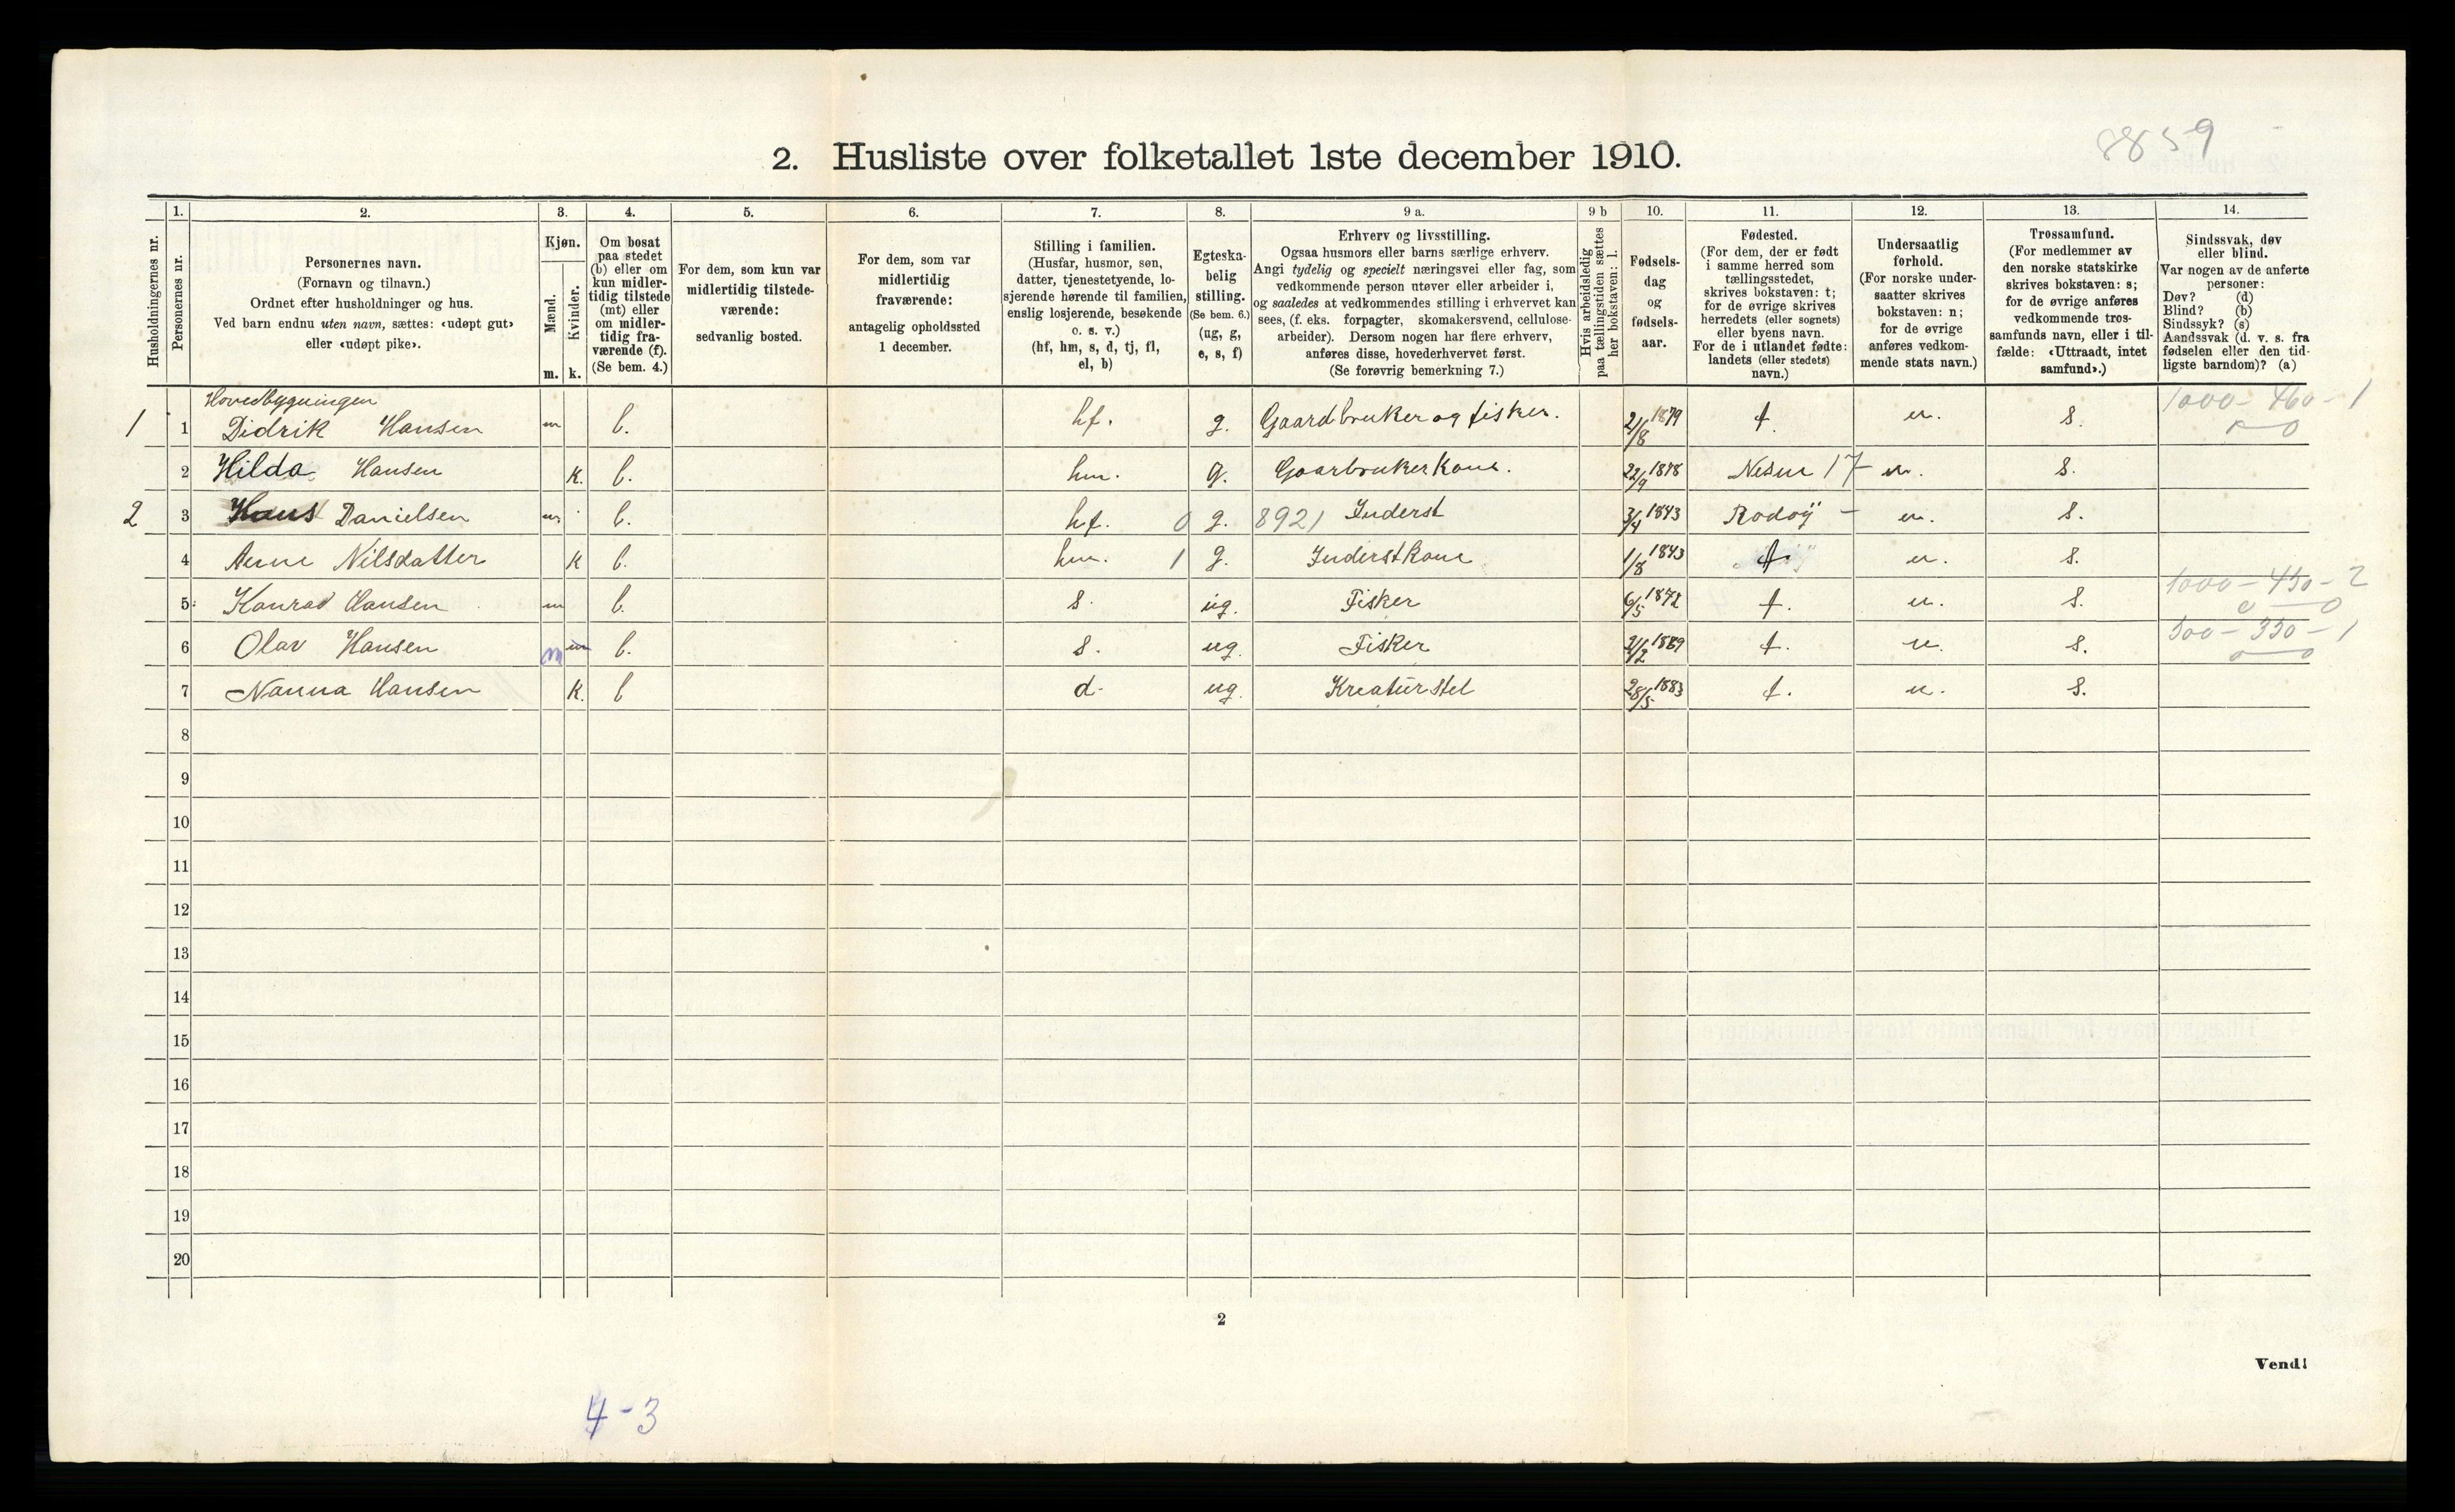 8859
2. Husliste over folketallet 1ste december 1910.
Husholdningernes nr.
1.
Personernes nr.
2.
Personernes navn.
(Fornavn og tilnavn.)
Ordnet efter husholdninger og hus.
Ved barn endnu uten navn, sættes: «udøpt gut»
eller «udøpt pike».
3.
Kjøn.
Mænd.
Kvinder.
m. k.
4.
Om bosat
paa stedet
(b) eller om
kun midler-
tidig tilstede
(mt) eller
om midler-
tidig fra-
værende (f).
(Se bem. 4.)
5.
For dem, som kun var
midlertidig tilstede-
værende:
sedvanlig bosted.
6.
For dem, som var
midlertidig
fraværende:
antagelig opholdssted
1 december.
7.
Stilling i familien.
(Husfar, husmor, søn,
datter, tjenestetyende, lo-
sjerende hørende til familien,
enslig losjerende, besøkende
o. s. v.)
(hf, hm, s, d, tj, fl,
el, b)
8.
Egteska-
belig
stilling.
(Se bem. 6.)
(ug, g,
e, s, f)
9 a.
Erhverv og livsstilling.
Ogsaa husmors eller barns særlige erhverv.
Angi tydelig og specielt næringsvei eller fag, som
vedkommende person utøver eller arbeider i,
og saaledes at vedkommendes stilling i erhvervet kan
sees, (f. eks. forpagter, skomakersvend, cellulose-
arbeider). Dersom nogen har flere erhverv,
anføres disse, hovederhvervet først.
(Se forøvrig bemerkning 7.)
9 b
Hvis arbeidsledig
paa tællingstiden sættes
her bokstaven: l.
10.
Fødsels-
dag
og
fødsels-
aar.
11.
Fødested.
(For dem, der er født
i samme herred som
tællingsstedet,
skrives bokstaven: t;
for de øvrige skrives
herredets (eller sognets)
eller byens navn.
For de i utlandet fødte:
landets (eller stedets)
navn.)
12.
Undersaatlig
forhold.
(For norske under-
saatter skrives
bokstaven: n;
for de øvrige
anføres vedkom-
mende stats navn.)
13.
Trossamfund.
(For medlemmer av
den norske statskirke
skrives bokstaven: s;
for de øvrige anføres
vedkommende tros-
samfunds navn, eller i til-
fælde: «Uttraadt, intet
samfund».)
14.
Sindssvak, døv
eller blind.
Var nogen av de anførte
personer:
Døv? (d)
Blind? (b)
Sindssyk? (s)
Aandssvak (d. v. s. fra
fødselen eller den tid-
ligste barndom)? (a)
Hovedbygningen
1 1 Didrik Hansen m b. hf. g. Gaardbruker og fisker. 2/8 1879 t n. s. 1000 - 460 - 1
2 Hilda Hansen k. b. hm. g. Gaarbrukerkone. 22/9 1878 Nesne 17 n. s.
2 3 Hans Danielsen m b. hf. 0 g. 8921 Inderst 3/4 1843 Rodøy - n. s.
4 Anne Nilsdatter k b. hm. 1 g. Inderstkone 1/8 1843 t n. s.
5 Konrad Hansen m b. s. ug. Fisker 6/5 1872 t. n. s. 1000 - 450 - 2
6 Olav Hansen m b. s. ug. Fisker 1889 t. n. s. 500 - 350 - 1
7 Nanna Hansen k. b d. ug. Kreaturstel 28/5 1883 t. n. s.
8
9
10
11
12
13
14
15
16
17
18
19
20
2
Vend!
4-3